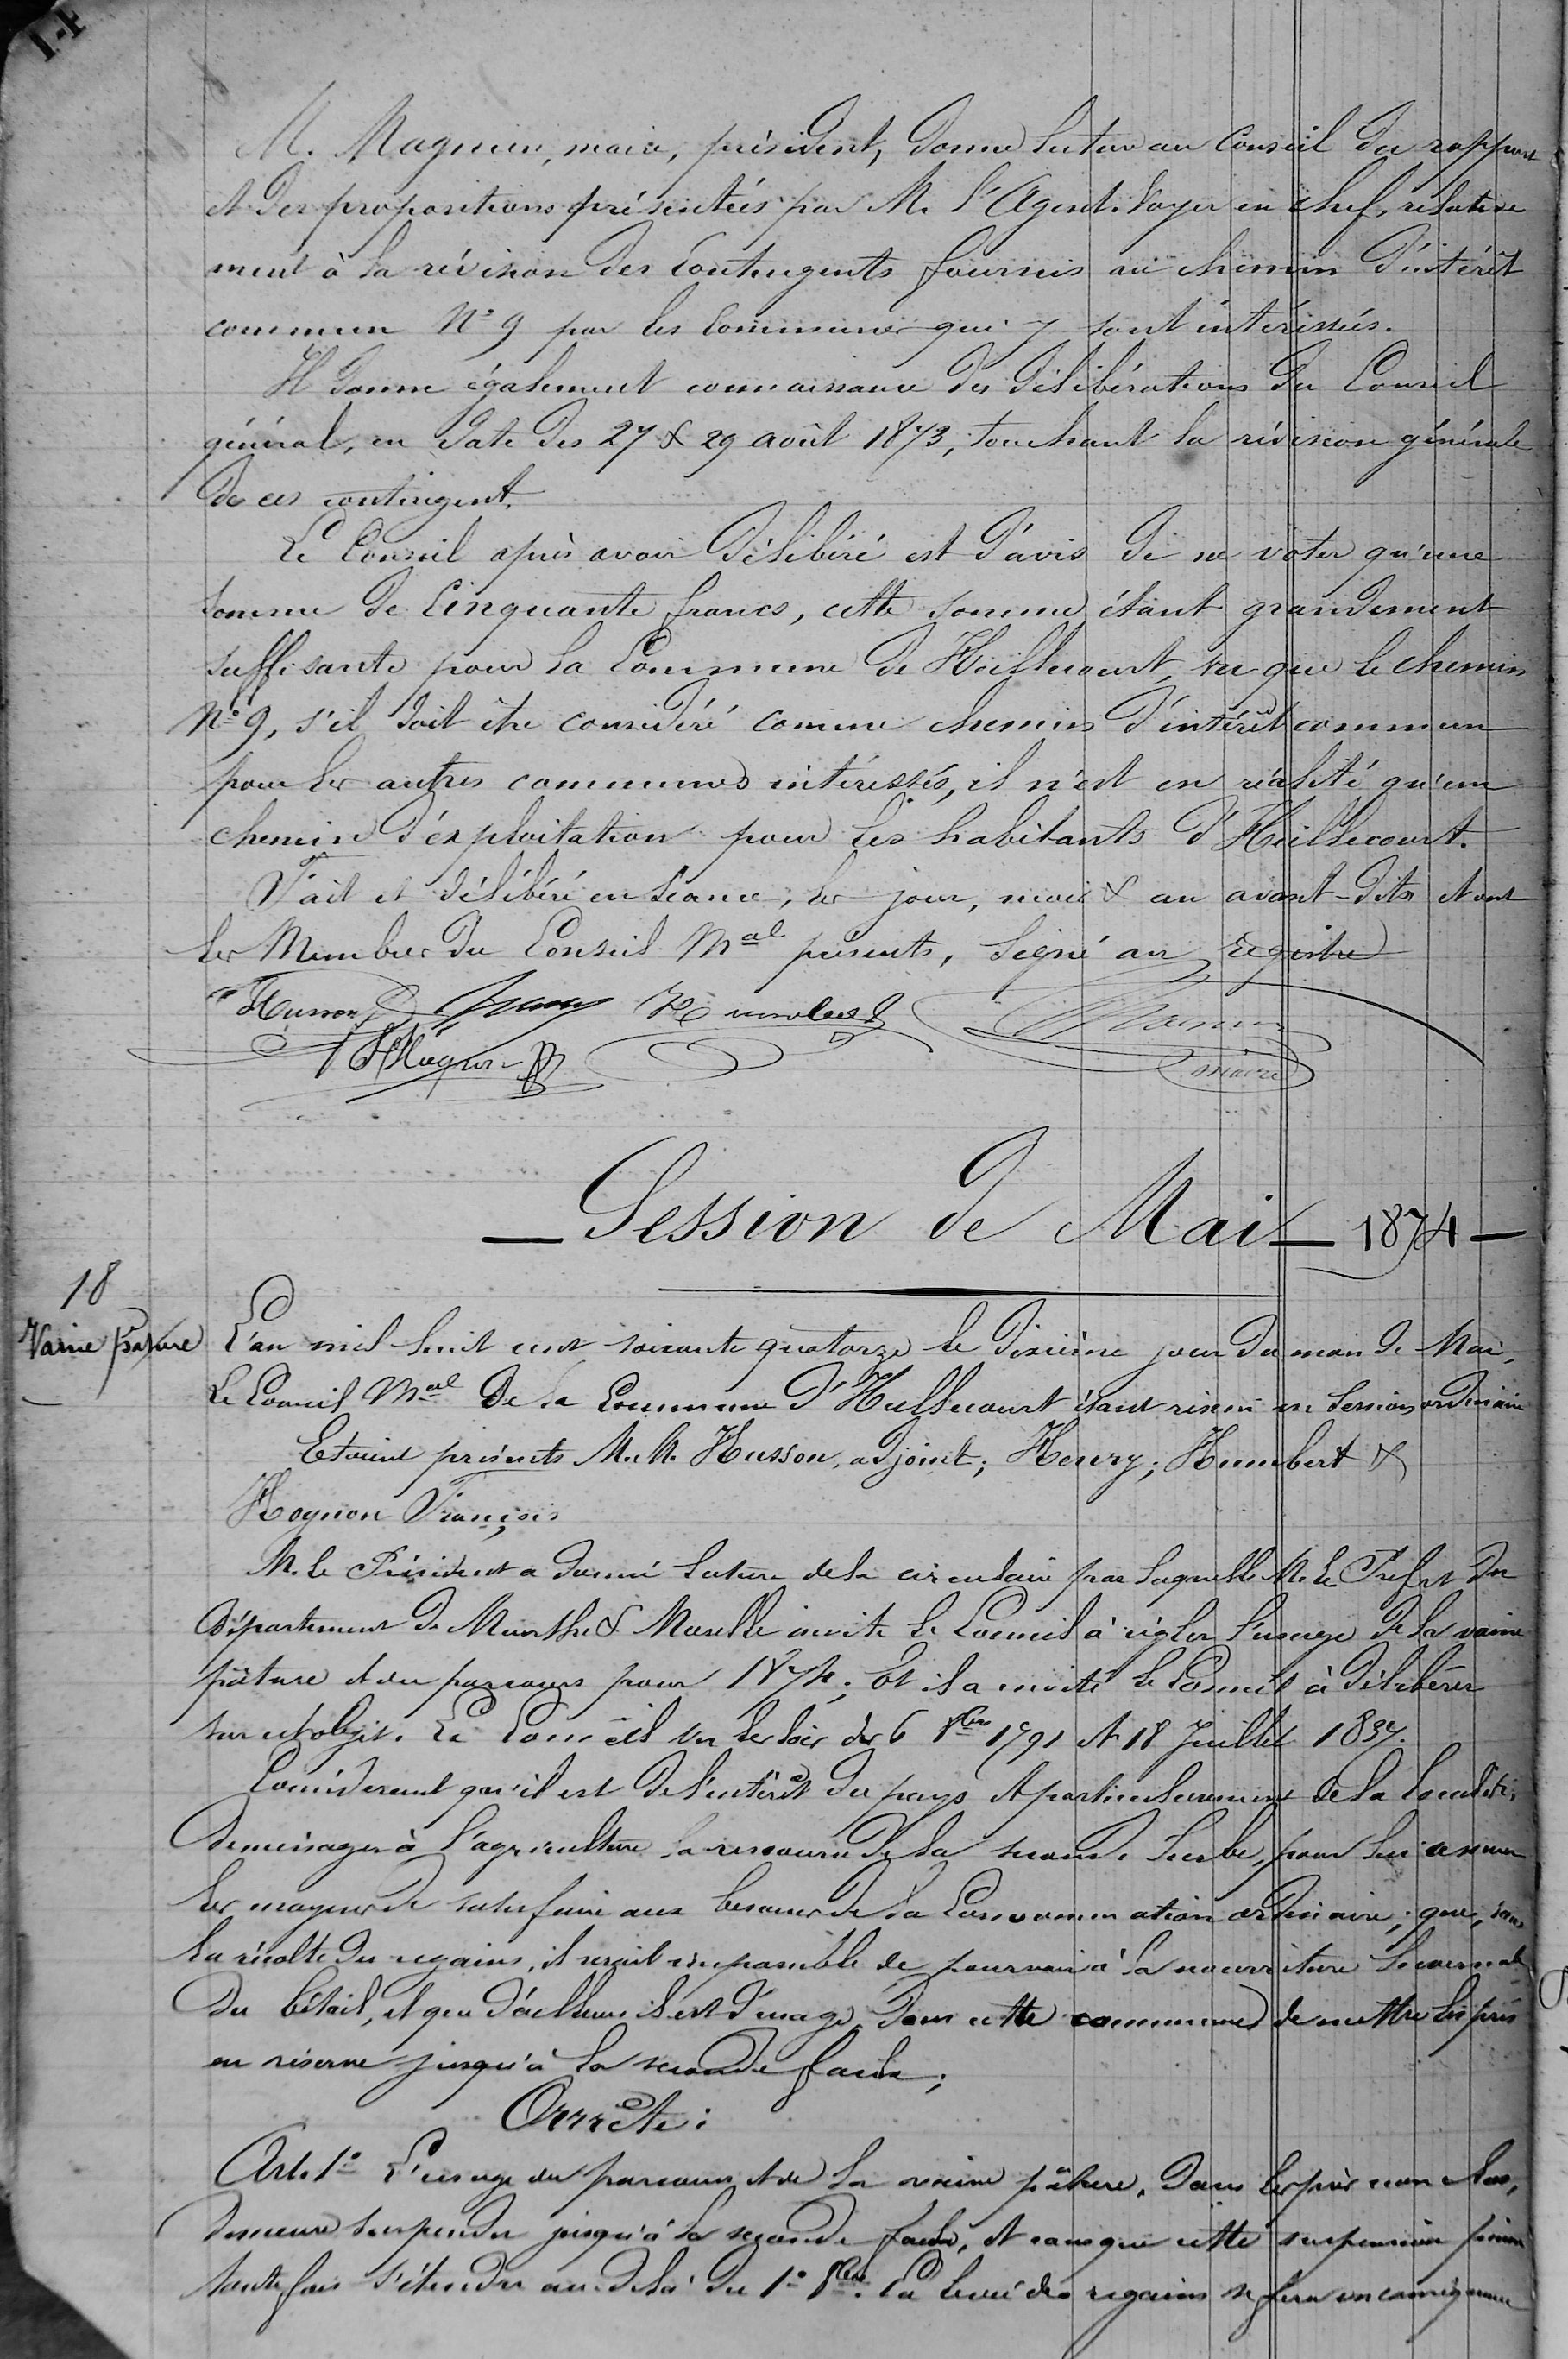 14
M. Magnien, maire, président, donne lecture au Conseil du rapport
et des propositions présentées par M. l'Agent-Voyer en chef, relative
ment à la révision des Contingents fournis au chemin d'intérêt
commun N° 9 par les Communes qui y sont intéressées.
Il donne également connaissance des délibérations du Conseil
général, en date des 27 & 29 août 1873, touchant la révision générale
de ces contingent.
Le Conseil après avoir délibéré est d'avis de ne voter qu'une
somme de Cinquante francs, cette somme étant grandement
suffisante pour la Commune de Heillecourt, vu que le chemin
N° 9, s'il doit être considéré comme chemin d'intérêt commun
pour les autres communes intéressés, il n'est en réalité qu'un
chemin d'exploitation pour les habitants d'Heillecourt.
Fait et délibéré en séance, les jour, mois & an avant-dits et ont
les Membres du Conseil Mal présents, signé au registre
Husson Henry Humbert
Hognon maire
Session de Mai 1874
18
Vaine pâture
L'an mil huit cent soixante quatorze le dixième jour du mois de Mai,
Le Conseil Mal De la Commune d'Heillecourt étant réuni en session ordinaire
Etaient présents M.M. Husson, adjoint; Henry; Humbert &
Hognon François
M. le Président a donné lecture de la circulaire par laquelle M. le Préfet du
Département de Meurthe & Moselle invite le Conseil à régler l'usage de la vaine
pâture et du parcours pour 1874; Et il a invité le Conseil à délibérer
sur cet objet. Le Conseil vu les lois des 6 8bre 1791 et 18 Juillet 1837.
Considérant qu'il est de l'intérêt du pays et particulièrement de la localité,
de ménager à l'agriculture la ressource de la seconde herbe, pour lui assurer
les moyens de satisfaire aux besoins de la Consommation ordinaire; que, sans
la récolte du regains, il serait impossible de pourvoir à la nourriture hivernale
du bétail, et que d'ailleurs il est d'usage dans cette commune de mettre les prés
en réserve jusqu'à la seconde faulx;
Arrête:
Art. 1° L'usage du parcours et de la vaine pâture, dans les prés non clos,
demeure suspendu jusqu'à la seconde faulx, et sans que cette suspension puisse
toutefois s'étendre au-delà du 1° 8bre. La levée des regains se fera